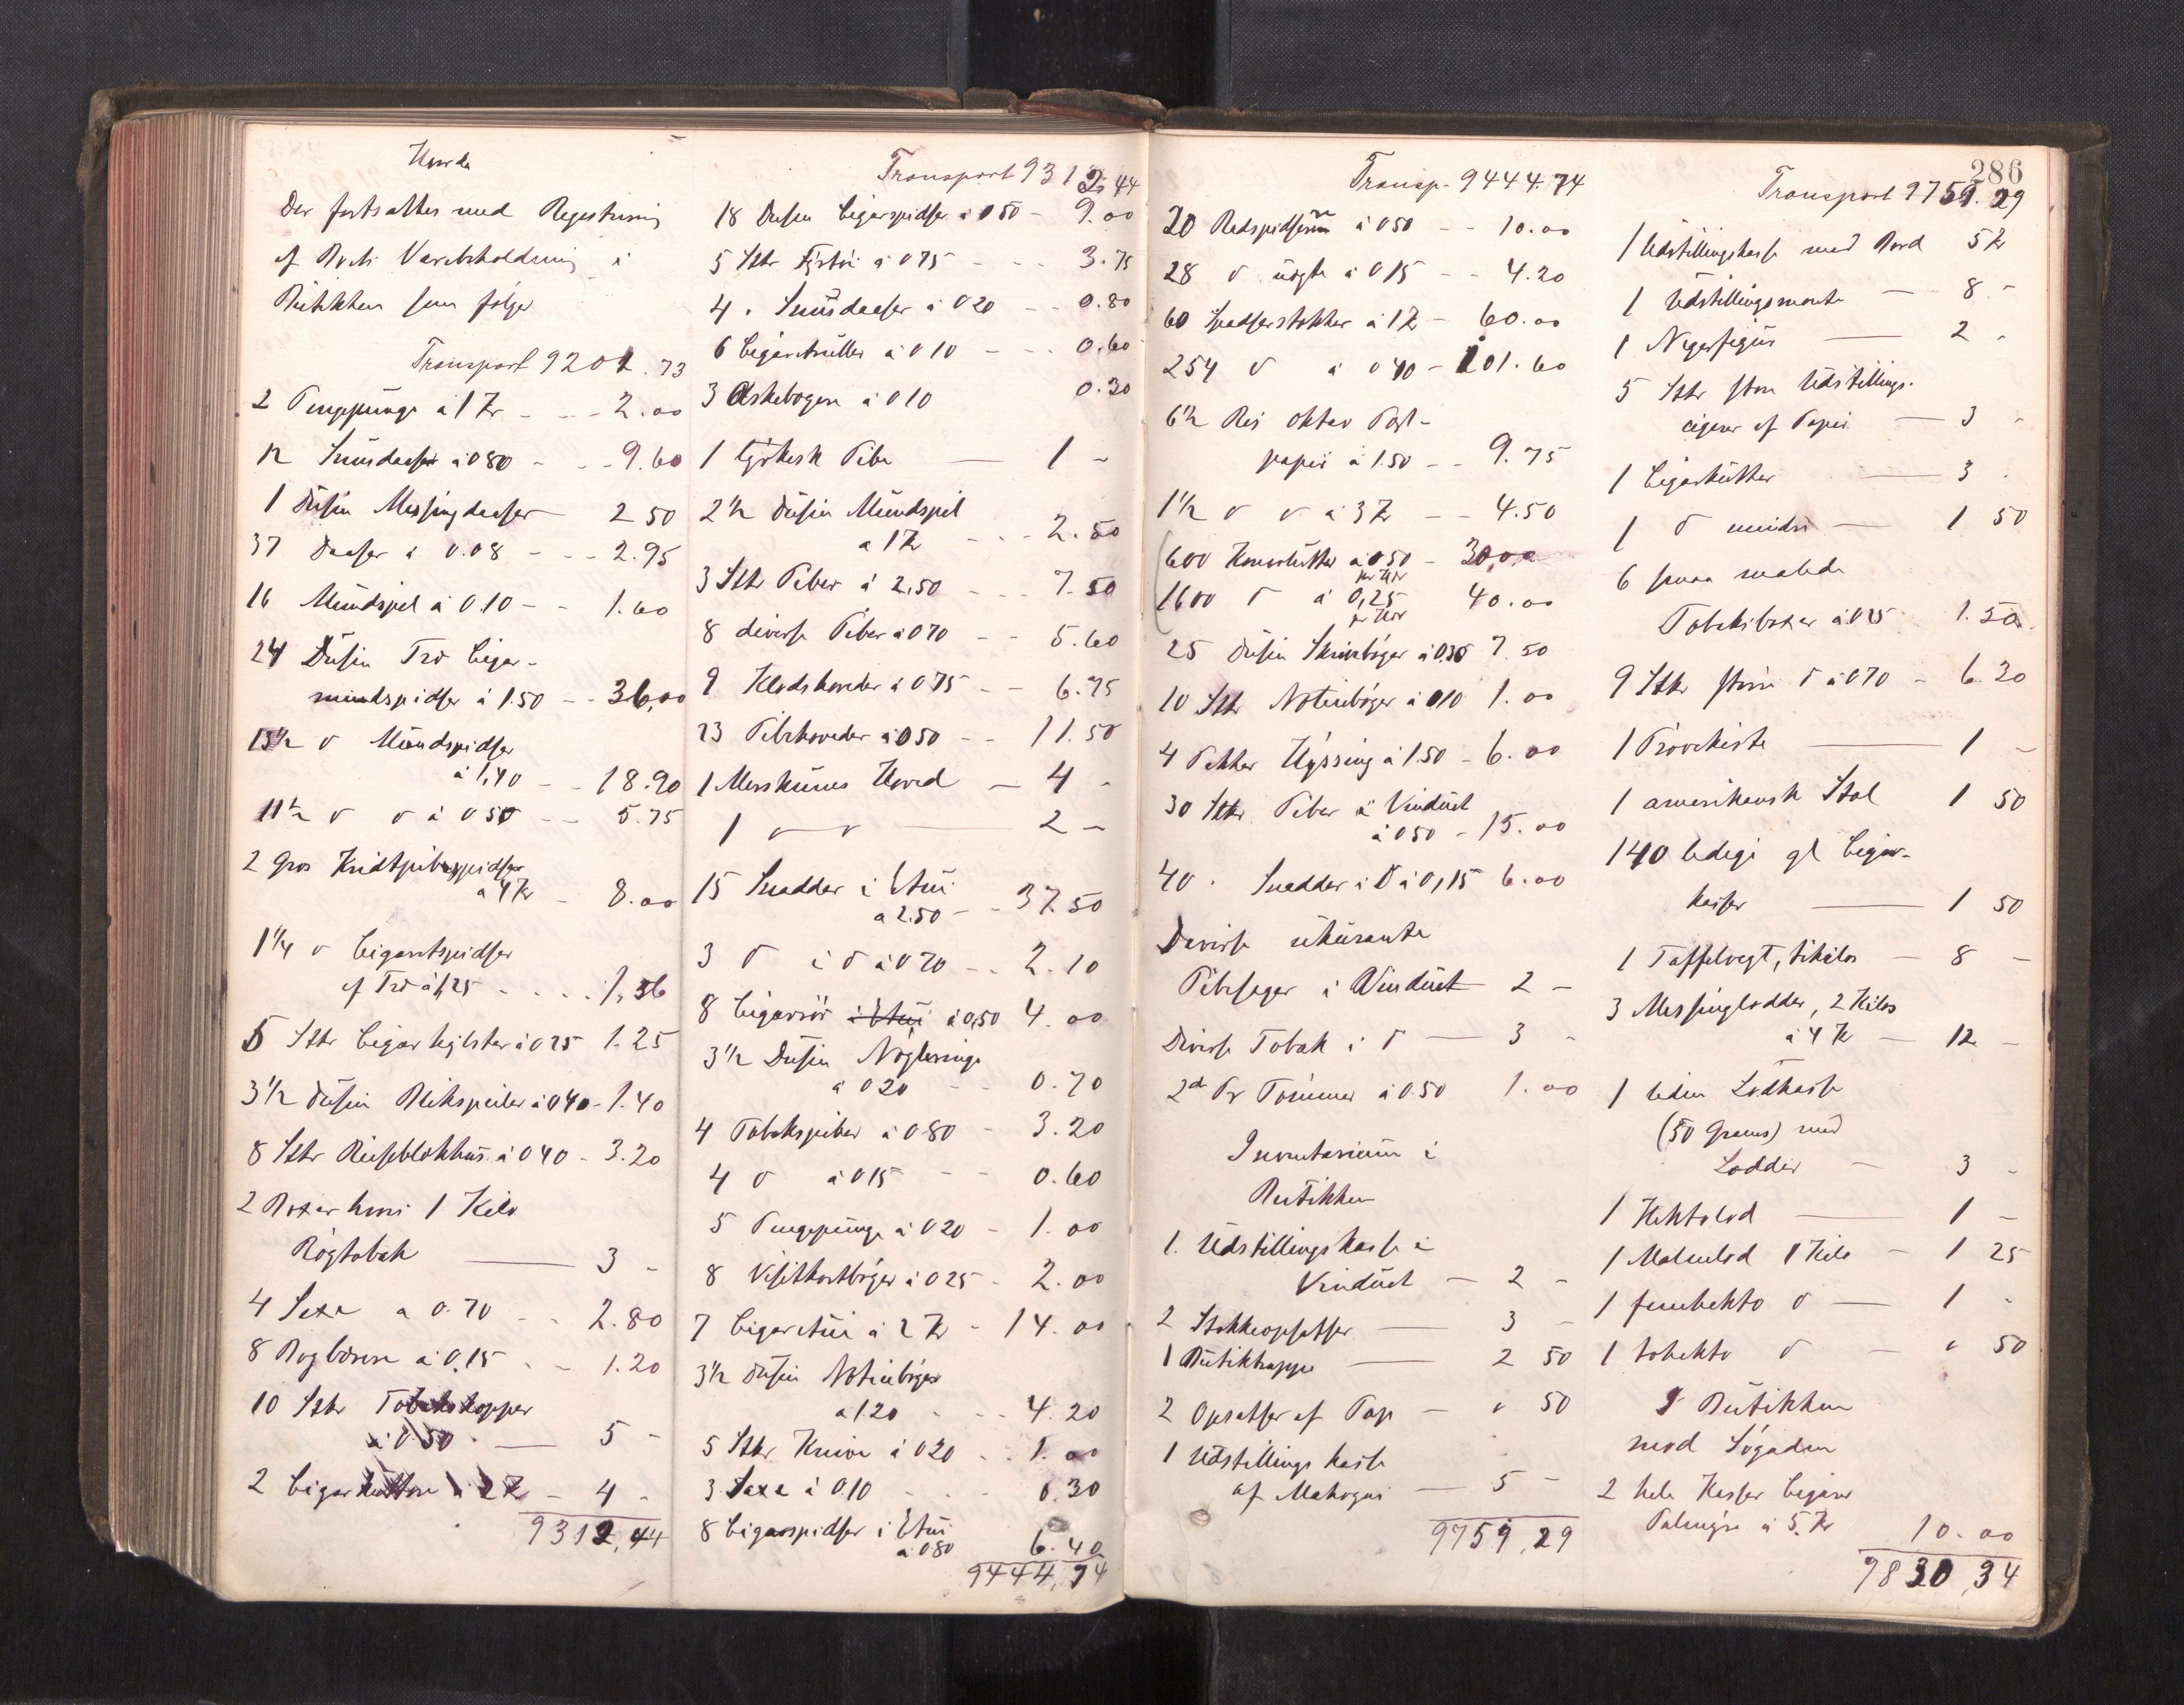 Der fortsattes med Registrering
af Boets Varebeholdning i
Butikken som følger
Transport 9201.73
2 Pengepunge à 1 Kr - - - 2.00
12 Snusdaaser à 0 80 - - - 9.60
1 Dusin Messingdaaser - 2 50
37 Daaser à 0.08 - - - 2.95
16 Mundspil à 0.10 - - 1.60
24 Dusin Træ Cigar-
mundspidser à 1.50 - - 36,00
13½ " Mundspidser
à 1,40 - - 18.90
11½ " " à 0 50 - - 5.75
2 Gros Kridtpibespidser
à 4 Kr - 8.00
1¼ " Cigaretspidser
af Træ à 1,25 - - - - 1,56
5 Stkr Cigarhylster à 0 25 1.25
3½ Dusin à 0 40 - 1.40
8 Stkr à 0 40 - 3.20
2 Boxer hver 1 Kilo
Røgtobak — 3 -
4 Saxe a 0.70 - - 2.80
8 à 0,15 - - 1.20
10 Stkr Tobakskopper
à 0.50 — 5 -
2 Cigarkuttere à 2 Kr - 4 -
9312,44
Transport 9312,44
18 Dusin Cigarspidser à 0 50 - 9.00
5 Stkr Fyrtøi à 0 75 - - - 3.75
4 " Snusdaaser à 0 20 - - 0.80
6 à 0 10 - - - 0.60
3 Askebægere à 0 10 0.30
1 tyrkisk Pibe — 1 -
2½ Dusin Mundspil
a 1 Kr - - - 2.50
3 Stkr Piber à 2,50 - - - 7.50
8 diverse Piber à 0 70 - - 5.60
9 à 0 75 - - 6.75
23 Pibehoveder à 0 50 - - 11.50
1 Merskums Hoved — 4 -
1 " " — 2 -
15 Snadder i Etui
a 2.50 - - 37.50
3 " i " à 0 70 - - 2.10
8 Cigarrør i Etui à 0,50 4.00
3½ Dusin Nøgleringe
à 0 20 - - 0.70
4 Tobakspiber à 0 80 - 3.20
4 " à 0 15 - - 0.60
5 Pengepunge à 0 20 - 1.00
8 Visitkortbøger à 0 25 - 2.00
7 Cigaretui à 2 Kr - 14.00
3½ Dusin Notisbøger
a 1.20 - - - 4.20
5 Stkr Knive à 0 20 - - 1.00
3 Saxe à 0.10 - - - 0.30
8 Cigarspidser i Etui
à 0 80 6.40
9444,74
286
Transp. 9444.74
20 Ravspidser à 0 50 - - 10.00
28 " uægte à 0 15 - - 4.20
60 Spadserstokker à 1 Kr - 60.00
254 " à 0 40 - 101.60
6½ Ris oktav Post-
papir à 1.50 - - 9.75
1½ " " à 3 Kr - - 4.50
600 Konvolutter à 0 50 - 30,00
per
1600 " à 0,25 40.00
per
25 Dusin Skrivebøger à 0.30 7.50
10 Stkr Notisbøger à 0 10 1.00
4 Pakker Hyssing à 1.50 - 6.00
30 Stkr. Piber i Vinduet
à 0 50 - 15.00
40 " Snadder i " à 0,15 6.00
Diverse ukurante
Pibesager i Vinduet 2 -
Diverse Tobak i " — 3 -
2 Pr Tømmer à 0.50 1.00
Inventarium i
Butikken
1. Udstillingskasse i
Vinduet — 2 -
2 Stokkeopsatser — 3 -
1 Butiktrappe — 2 50
2 Opsatser af Pap — " 50
1 Udstillings kasse
af Mahogni — 5 -
9759,29
Transport 9759.29
1 Udstillingskasse med Bord 5 Kr
1 Udstillingsmonte — 8 -
1 Negerfigur — 2 -
5 Stkr store Udstillings-
cigarer af Papir — 3 -
1 Cigarkutter — 3 -
1 " mindre — 1 50
6 smaa malede
Tobaksboxer à 0 25 1.50
9 Stkr større " à 0 70 - 6.30
1 Prøvekiste — 1 -
1 amerikansk Stol 1 50
140 ledige gl Cigar-
kasser — 1 50
1 Taffelvægt, tikilos — 8 -
3 Messinglodder, 2 Kilos
à 4 Kr — 12 -
1 liden Lodkasse
(50 Grams) med
Lodder — 3 -
1 Hektolod — 1 -
1 Malmlod 1 Kilo - 1 25
1 femhekto " — 1 -
1 tohekto " - " 50
I Butikken
mod Søgaden
2 hele Kasser Cigarer
à 5 Kr 10.00
9830,34